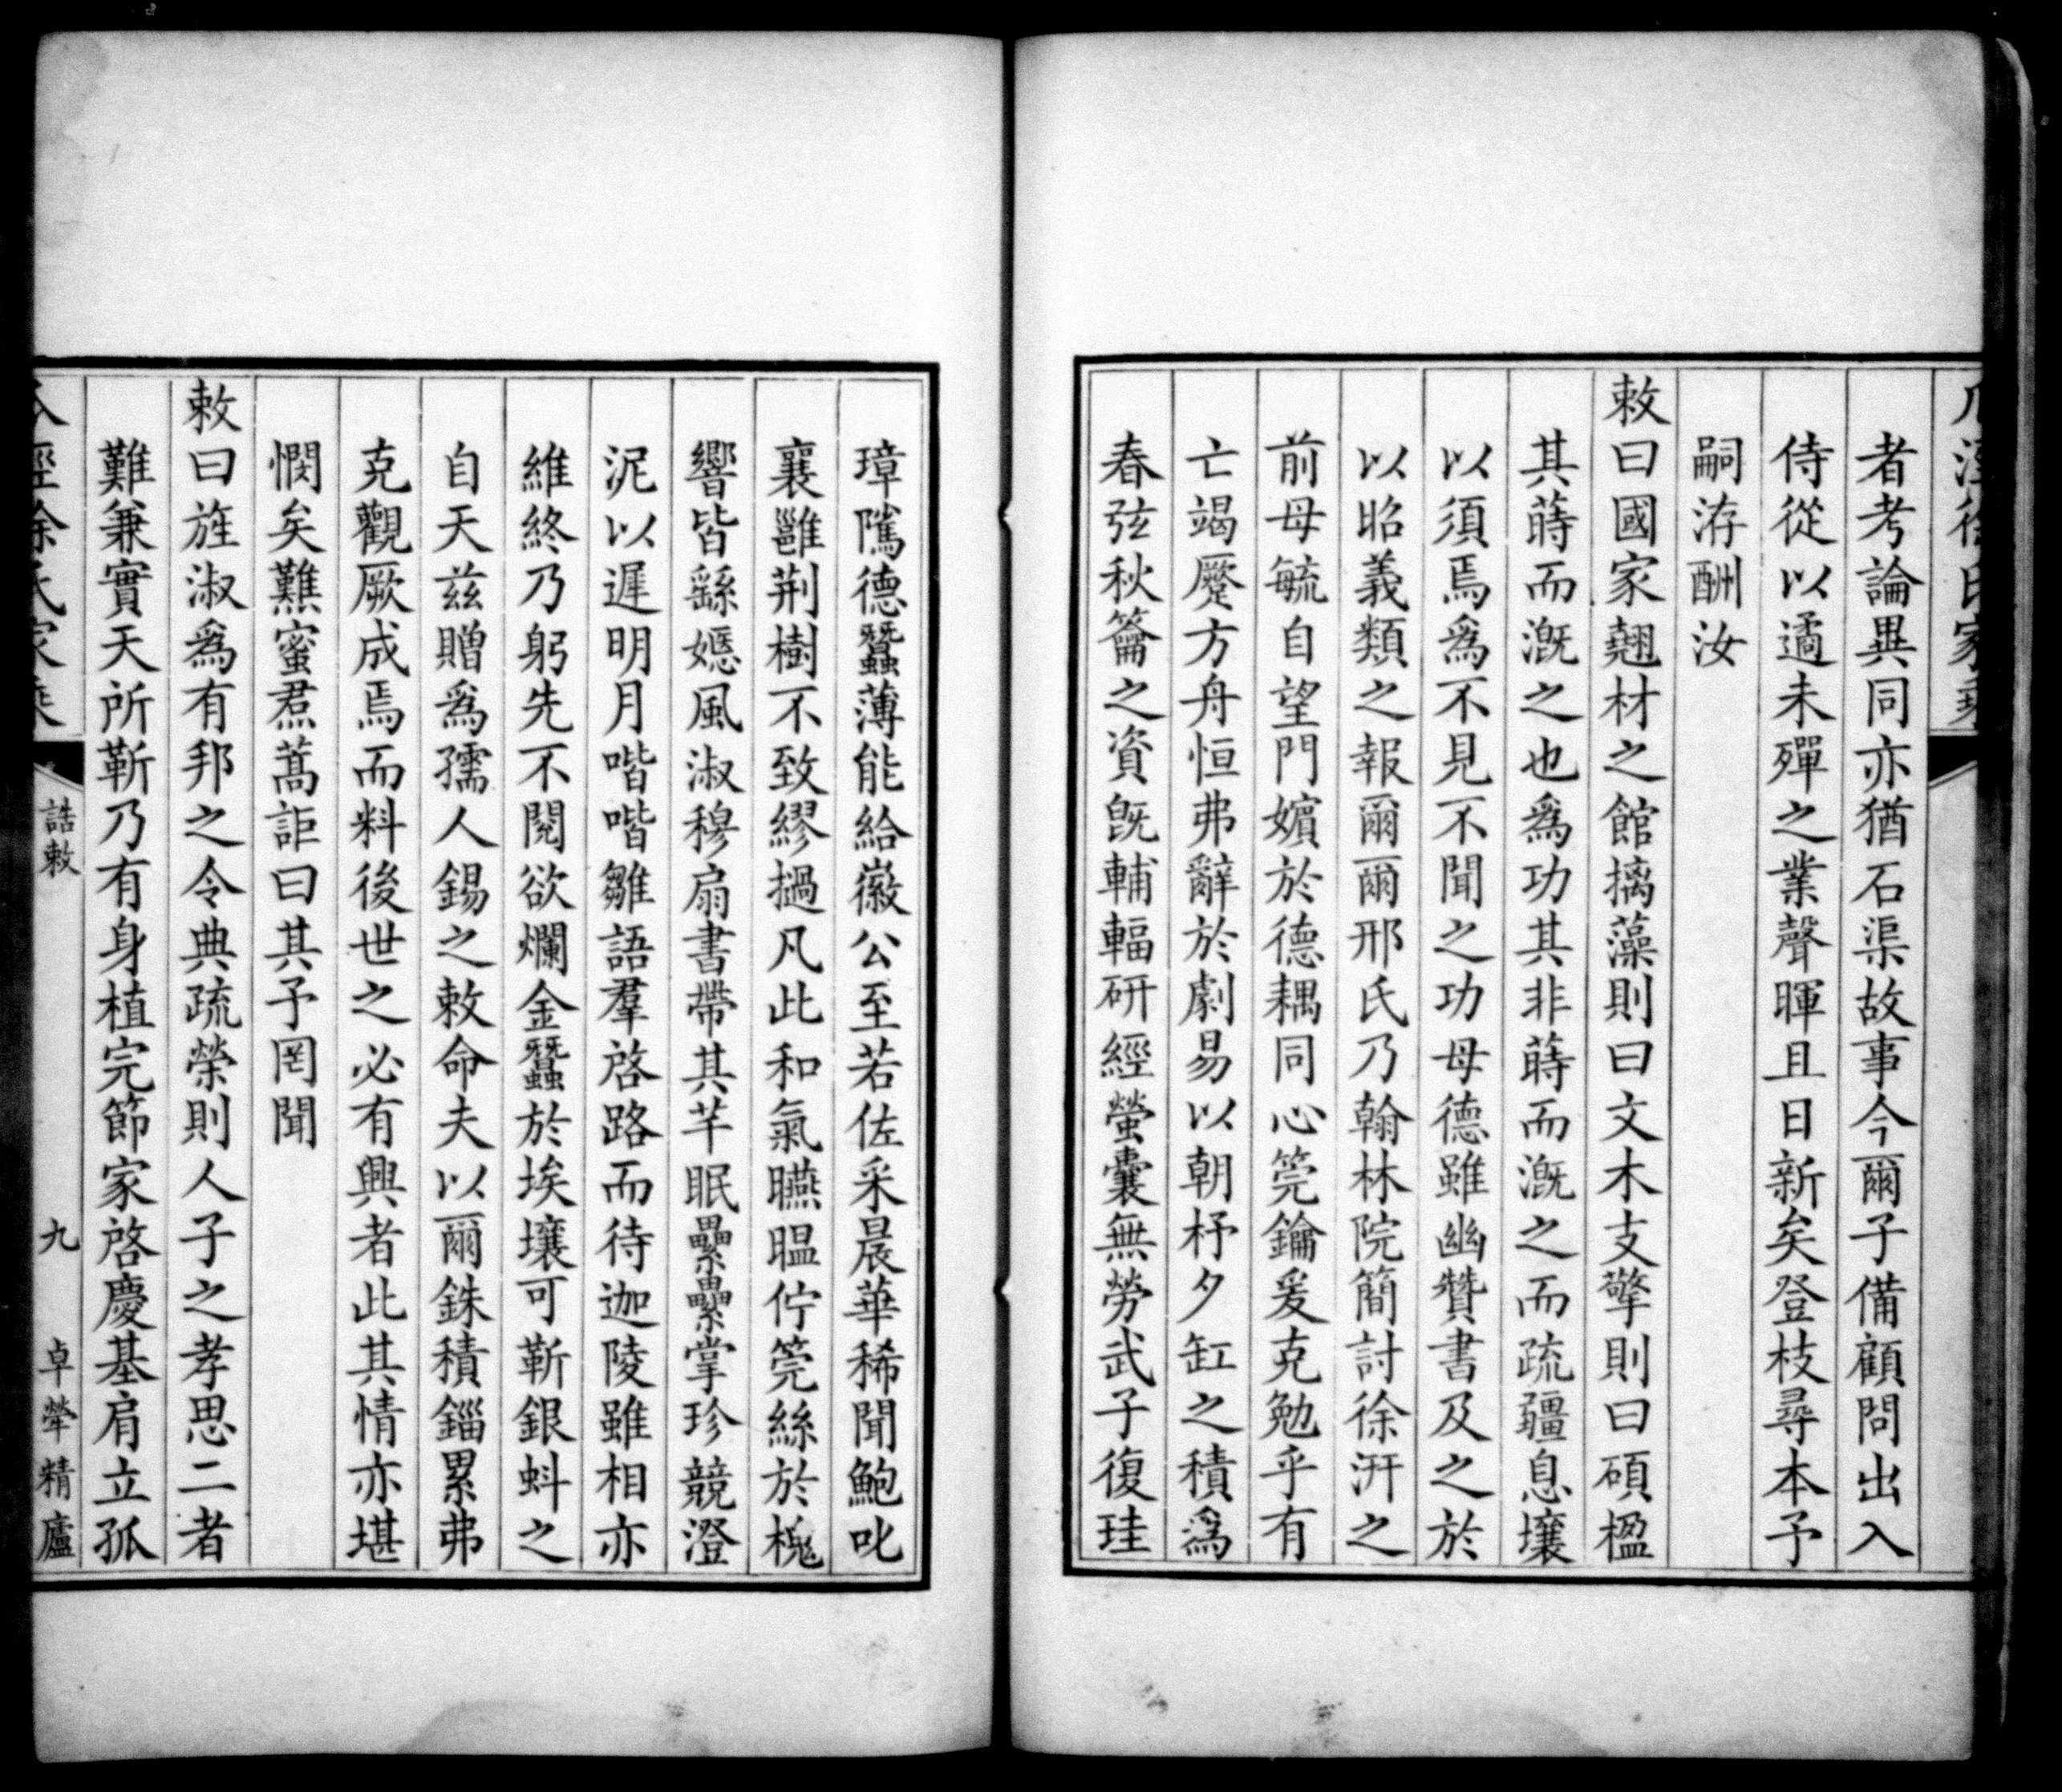 者考論異同亦猶石渠故事今爾子備顧問出入
侍從以遹未殫之業聲暉且日新矣登枝尋本予
嗣洊酬汝
敕曰國家翹材之館摛藻則曰文木支擎則曰碩楹
其蒔而漑之也爲功其非蒔而漑之而疏疆息壤
以須焉爲不見不聞之功母德雖幽贊書及之於
以昭義類之報爾爾邢氏乃翰林院簡討徐汧之
前母毓自望門嬪於德耦同心筦鑰爰克勉乎有
亡竭蹷方舟恒弗辭於劇易以朝杼夕缸之積爲
春弦秋籥之資旣輔輻研經螢囊無勞武子復珪
璋隲德蠶薄能給徽公至若佐采晨華稀聞鮑叱
襄雝荆樹不致繆撾凡此和氣曣㬈佇筦絲於槐
響皆繇嫕風淑穆扇書帶其芊眠纍纍掌珍競澄
泥以遲明月喈喈雛語羣啓路而待迦陵雖相亦
維終乃躬先不閱欲爛金蠶於埃壤可靳銀蚪之
自天兹贈爲孺人錫之敕命夫以爾銖積錙累弗
克觀厥成焉而料後世之必有興者此其情亦堪
憫矣爇蜜焄蒿詎曰其予罔聞
敕曰旌淑爲有邦之令典疏榮則人子之孝思二者
難兼實天所靳乃有身植完節家啓慶基肩立孤
徐氏家乘
誥敕
九
卓犖精廬